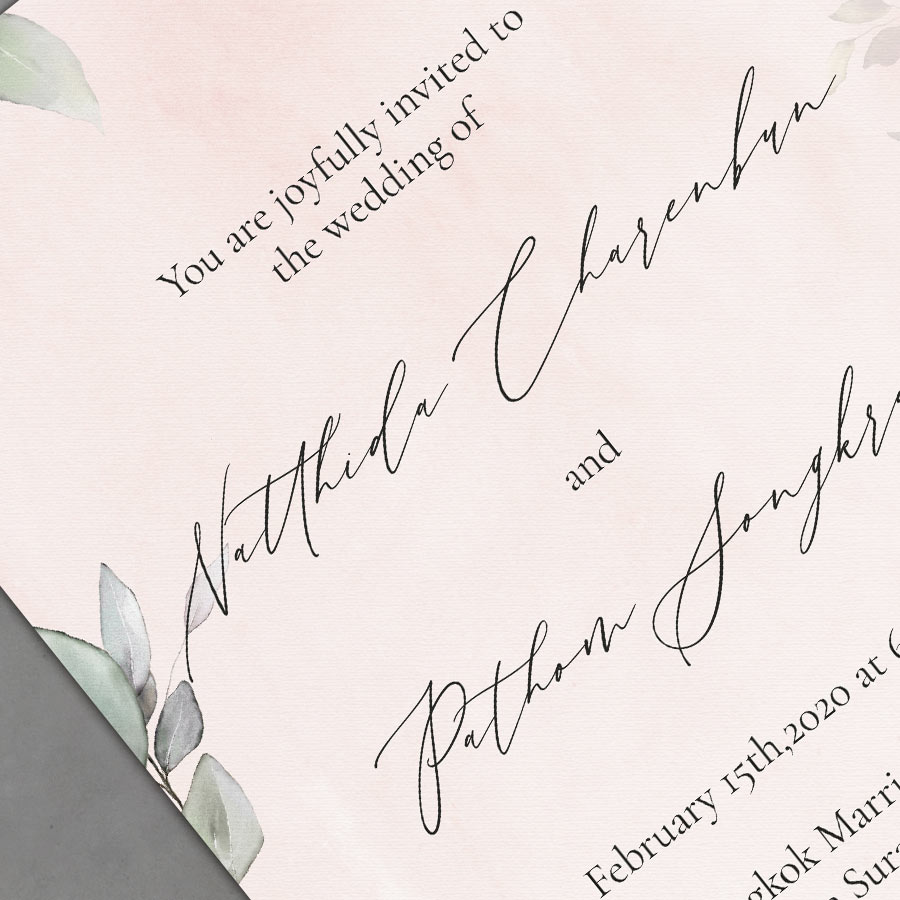 You are joyfully invited to
the wedding of
Natthida Charenbun
and
Pathom
February 15th,2020 at